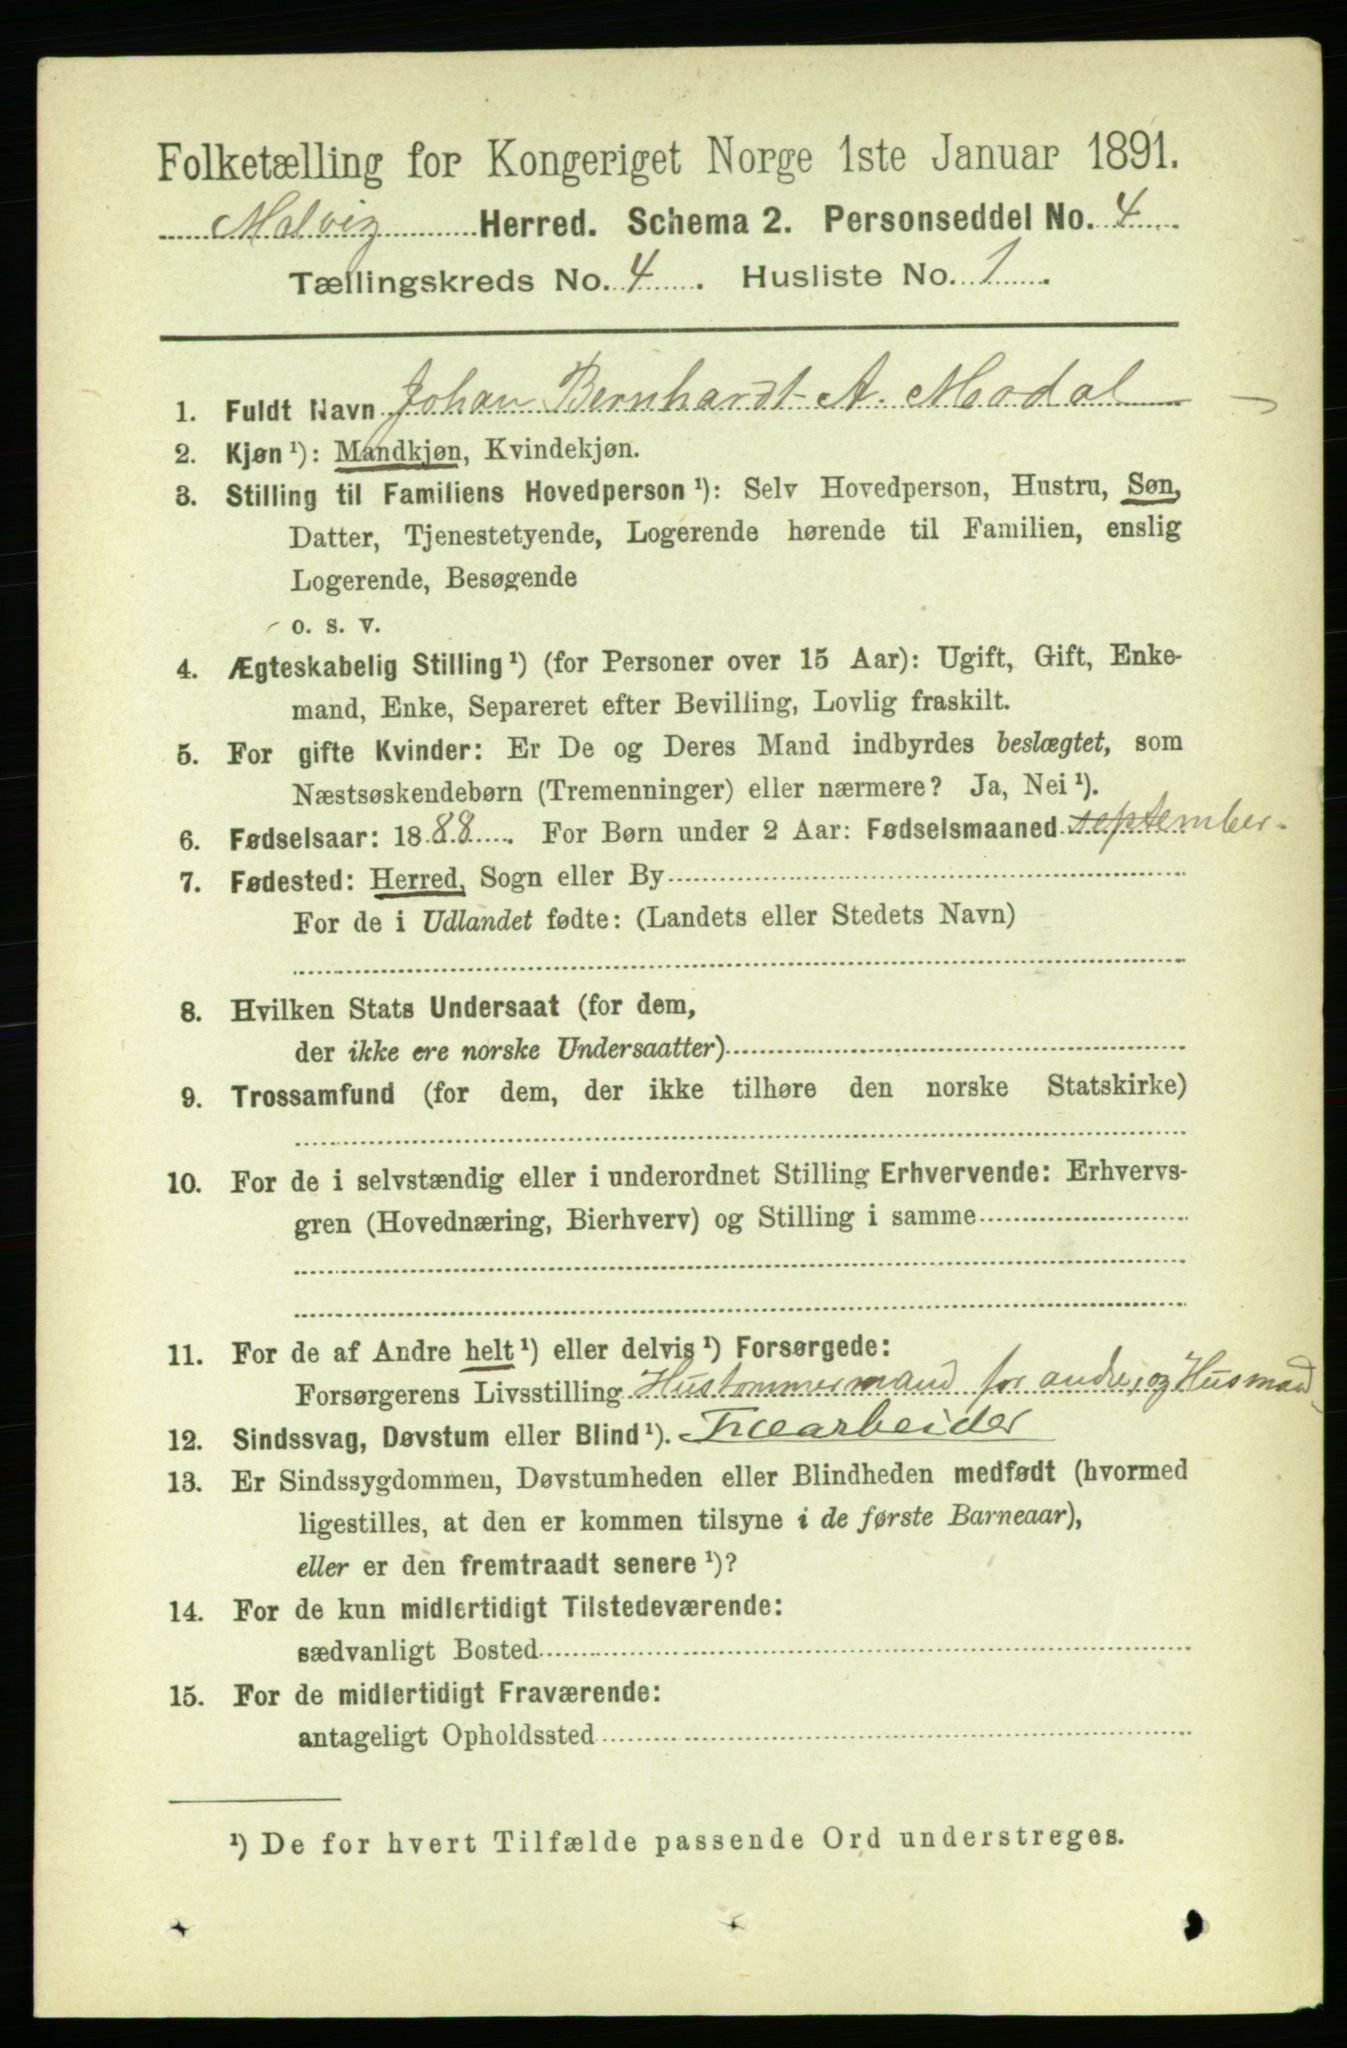 Folketælling for Kongeriget Norge 1ste Januar 1891.
Malvig Herred. Schema 2. Personseddel No. 4
Tællingskreds No. 4. Husliste No. 1.
1. Fuldt Navn Johan Bernhardt A. Modal
2. Kjøn ¹): Mandkjøn, Kvindekjøn.
3. Stilling til Familiens Hovedperson ¹): Selv Hovedperson, Hustru, Søn,
Datter, Tjenestetyende, Logerende hørende til Familien, enslig
Logerende, Besøgende
o. s. v.
4. Ægteskabelig Stilling ¹) (for Personer over 15 Aar): Ugift, Gift, Enke-
mand, Enke, Separeret efter Bevilling, Lovlig fraskilt.
5. For gifte Kvinder: Er De og Deres Mand indbyrdes beslægtet, som
Næstsøskendebørn (Tremenninger) eller nærmere? Ja, Nei ¹).
6. Fødselsaar: 1888. For Børn under 2 Aar: Fødselsmaaned september.
7. Fødested: Herred, Sogn eller By
For de i Udlandet fødte: (Landets eller Stedets Navn)
8. Hvilken Stats Undersaat (for dem,
der ikke ere norske Undersaatter)
9. Trossamfund (for dem, der ikke tilhøre den norske Statskirke)
10. For de i selvstændig eller i underordnet Stilling Erhvervende: Erhvervs-
gren (Hovednæring, Bierhverv) og Stilling i samme
11. For de af Andre helt ¹) eller delvis ¹) Forsørgede:
Forsørgerens Livsstilling Hustømmermand for andre, og Husmand
12. Sindssvag, Døvstum eller Blind ¹). Træarbeider
13. Er Sindssygdommen, Døvstumheden eller Blindheden medfødt (hvormed
ligestilles, at den er kommen tilsyne i de første Barneaar),
eller er den fremtraadt senere ¹)?
14. For de kun midlertidigt Tilstedeværende:
sædvanligt Bosted
15. For de midlertidigt Fraværende:
antageligt Opholdssted
¹) De for hvert Tilfælde passende Ord understreges.